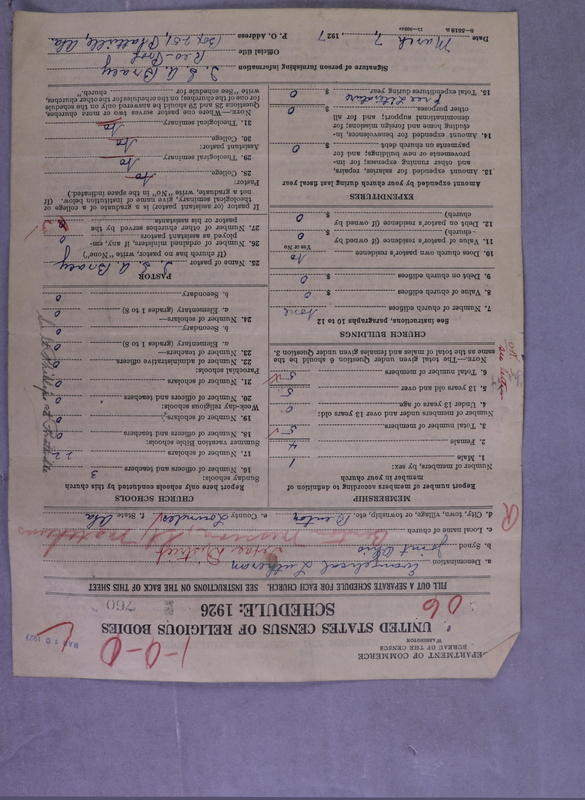 DEPARTMENT OF COMMERCE
BUREAU OF THE CENSUS
WASHINGTON
1-0-0
MAR 10 1927
UNITED STATES CENSUS OF RELIGIOUS BODIES
SCHEDULE: 1926
06
760
FILL OUT A SEPARATE SCHEDULE FOR EACH CHURCH. SEE INSTRUCTIONS ON THE BACK OF THIS SHEET
a. Denomination Evangelical Lutheran
b. Synod Joint Ohio
c. Local name of church
d. City, town, village, or township, etc. Benton e. County Lowndes f. State Ala
MEMBERSHIP
Report number of members according to definition of
member in your church
Number of members, by sex:
1. Male 1
2. Female 4
3. Total number of members 5
Number of members under and over 13 years old:
4. Under 13 years of age 0
5. 13 years old and over 5
6. Total number of members 5
NOTE.—The total given under Question 6 should be the
same as the total of males and females given under Question 3.
CHURCH BUILDINGS
See instructions, paragraphs 10 to 12
7. Number of church edifices none
8. Value of church edifices $ 0
9. Debt on church edifices $ 0
10. Does church own pastor's residence No
Yes or No
11. Value of pastor's residence (if owned by
church) $ 0
12. Debt on pastor's residence (if owned by
church) $ 0
EXPENDITURES
Amount expended by your church during last fiscal year
13. Amount expended for salaries, repairs,
and other running expenses; for im-
provements or new buildings; and for
payments on church debt $ 0
14. Amount expended for benevolences, in-
cluding home and foreign missions; for
denominational support; and for all
other purposes $ 0
Free Literature
15. Total expenditures during year $ 0
CHURCH SCHOOLS
Report here only schools conducted by this church
Sunday schools:
16. Number of officers and teachers 3
17. Number of scholars 22
Summer vacation Bible schools:
18. Number of officers and teachers 0
19. Number of scholars 0
Week-day religious schools:
20. Number of officers and teachers 0
21. Number of scholars 0
Parochial schools:
22. Number of administrative officers 0
23. Number of teachers—
a. Elementary (grades 1 to 8) 0
b. Secondary 0
24. Number of scholars—
a. Elementary (grades 1 to 8) 0
b. Secondary 0
PASTOR
25. Name of pastor
(If church has no pastor, write "None")
26. Number of ordained ministers, if any, em-
ployed as assistant pastors 0
27. Number of other churches served by the
pastor or his assistants
If pastor or assistant pastor is a graduate of a college or
theological seminary, give name of institution below. (If
not a graduate, write "No" in the space indicated.)
Pastor:
28. College. No
29. Theological seminary. No
Assistant pastor:
30. College. No
31. Theological seminary. No
NOTE.—Where one pastor serves two or more churches,
Questions 25 and 29 should be answered only on the schedule
for one of the churches; on the schedules for the other churches,
write "See schedule for church."
Signature of person furnishing information
Official title
P. O. Address
Date March 7, 1927